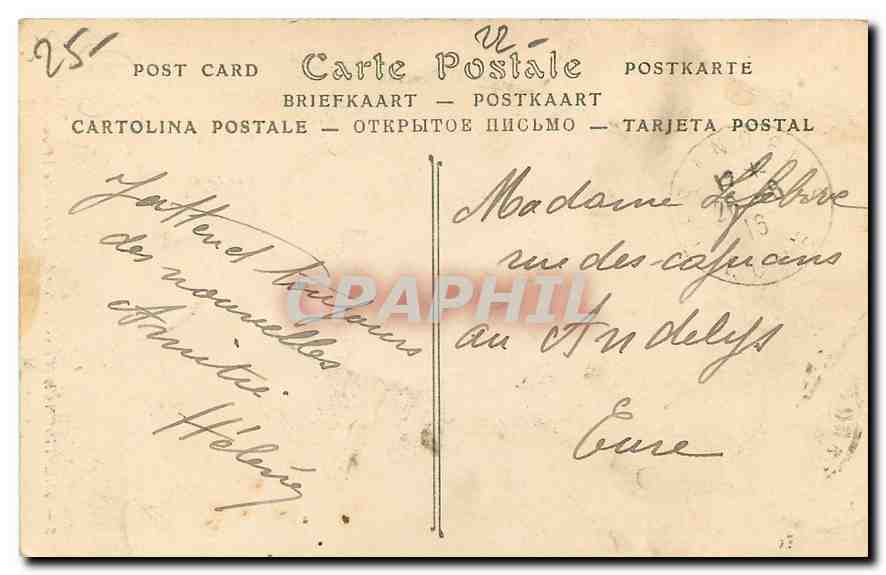 251
22
POST CARD Carte Postale POSTKARTE
BRIEFKAART — POSTKAART
CARTOLINA POSTALE — ОТКРЫТОЕ ПИСЬМО — TARJETA POSTAL
J'attend toujours
des nouvelles
Amitié
Hélène
Madame Lefebvre
rue des capucins
au Andelys
Eure
CPAPHIL